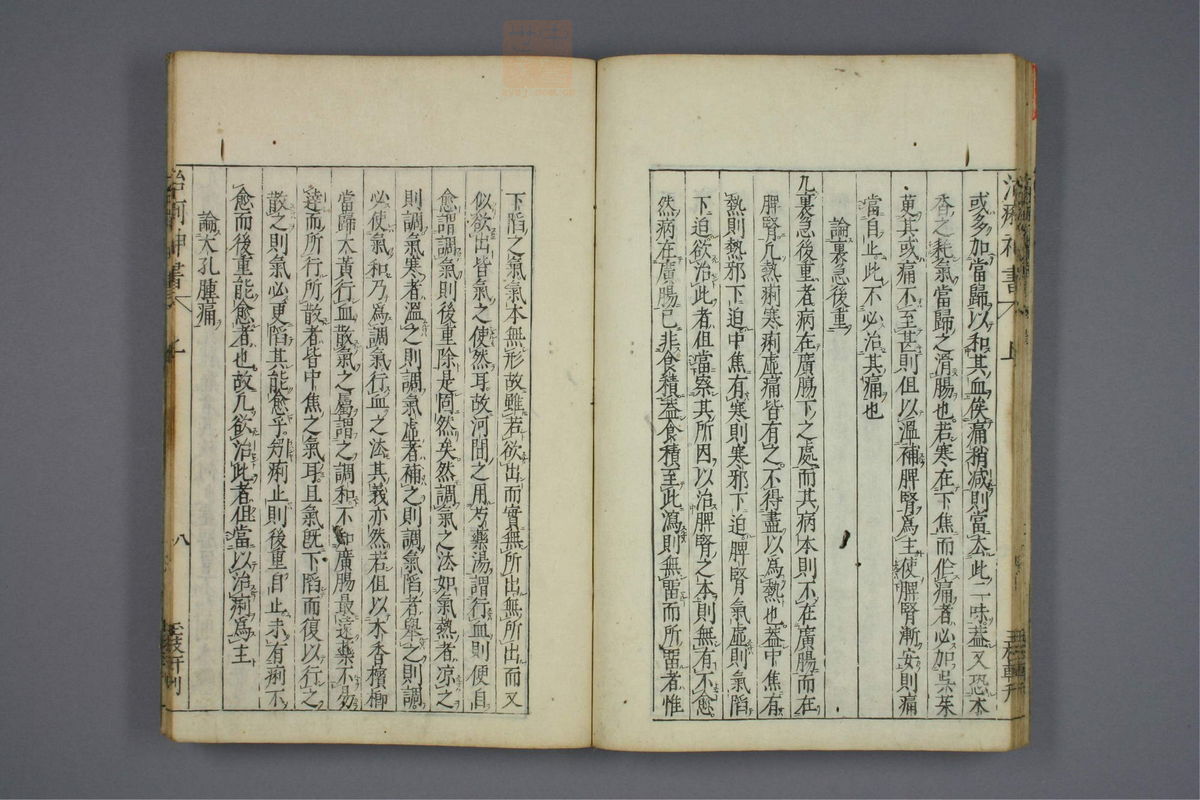 或多加當歸以和其血俟痛稍減則當去此二味葢又恐木
香之耗氣當歸之滑腸也若寒在下焦而作痛者必加吳茱
萸其或痛不至甚則但以溫補脾腎爲主使脾腎漸安則痛
當自止此不必治其痛也
論裏急後重
凢裏急後重者病在廣腸下之處而其病本則不在廣腸而在
脾腎凢熱痢寒痢虛痛皆有之不得盡以爲熱也葢中焦有
熱則熱邪下迫中焦有寒則寒邪下迫脾腎氣虛則氣䧟
下迫欲治此者但當察其所因以治脾腎之本則無有不愈
然病在廣腸已非食積葢食積至此瀉則無畱而所畱者惟
下䧟之氣氣本無形故雖若欲出而實無所出無所出而又
似欲出皆氣之使然耳故河間之用芍藥湯謂行血則便自
愈謂調氣則後重除是固然矣然調氣之法如氣熱者凉之
則調氣寒者溫之則調氣虛者補之則調氣䧟者舉之則調
必使氣和乃爲調氣行血之法其義亦然若但以木香檳榔
當歸大黃行血散氣之屬謂之調和不知廣腸最遠藥不易
達而所行所散者皆中焦之氣耳且氣既下䧟而復以行之
散之則氣必更䧟其能愈乎矧痢止則後重自止未有痢不
愈而後重能愈者也故凢欲治此者但當以治痢爲主
論大孔腫痛
治痢神書
上
八